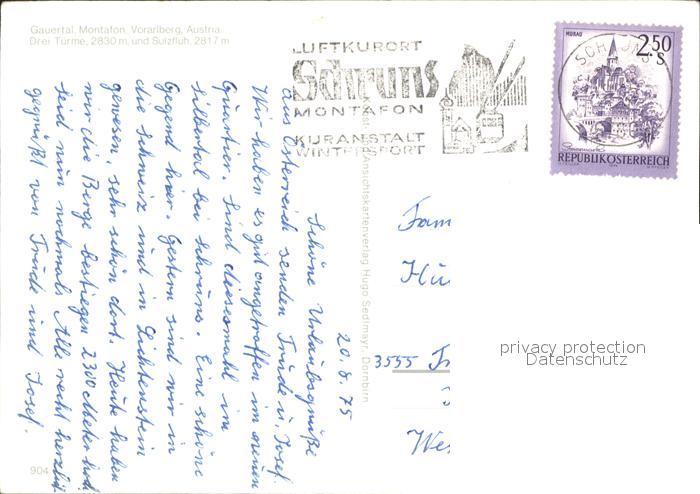 Gauertal, Montafon, Vorarlberg, Austria.
Drei Türme, 2830 m, und Sulzfluh, 2817 m
LUFTKURORT
Schruns
MONTAFON
KURANSTALT
WINTERSPORT
MURAU
2.50
S
REPUBLIK ÖSTERREICH
20.8.75
Schöne Urlaubsgrüße
aus Österreich senden Trude u. Josef.
Wir haben es gut angetroffen im neuen
Quartier. Sind diesesmahl im
Silbertal bei Schruns. Eine schöne
Gegend hier. Gestern sind wir in
die Schweiz und in Lichtenstein
gewesen, sehr schön dort. Heute haben
wir die Berge bestiegen 2300 Meter
Seid nun nochmals Alle recht herzlich
gegrüßt von Trude und Josef.
Ansichtskartenverlag Hugo Sedlmayr, Dornbirn
Fam
Hü
3555
We
privacy protection
Datenschutz
904